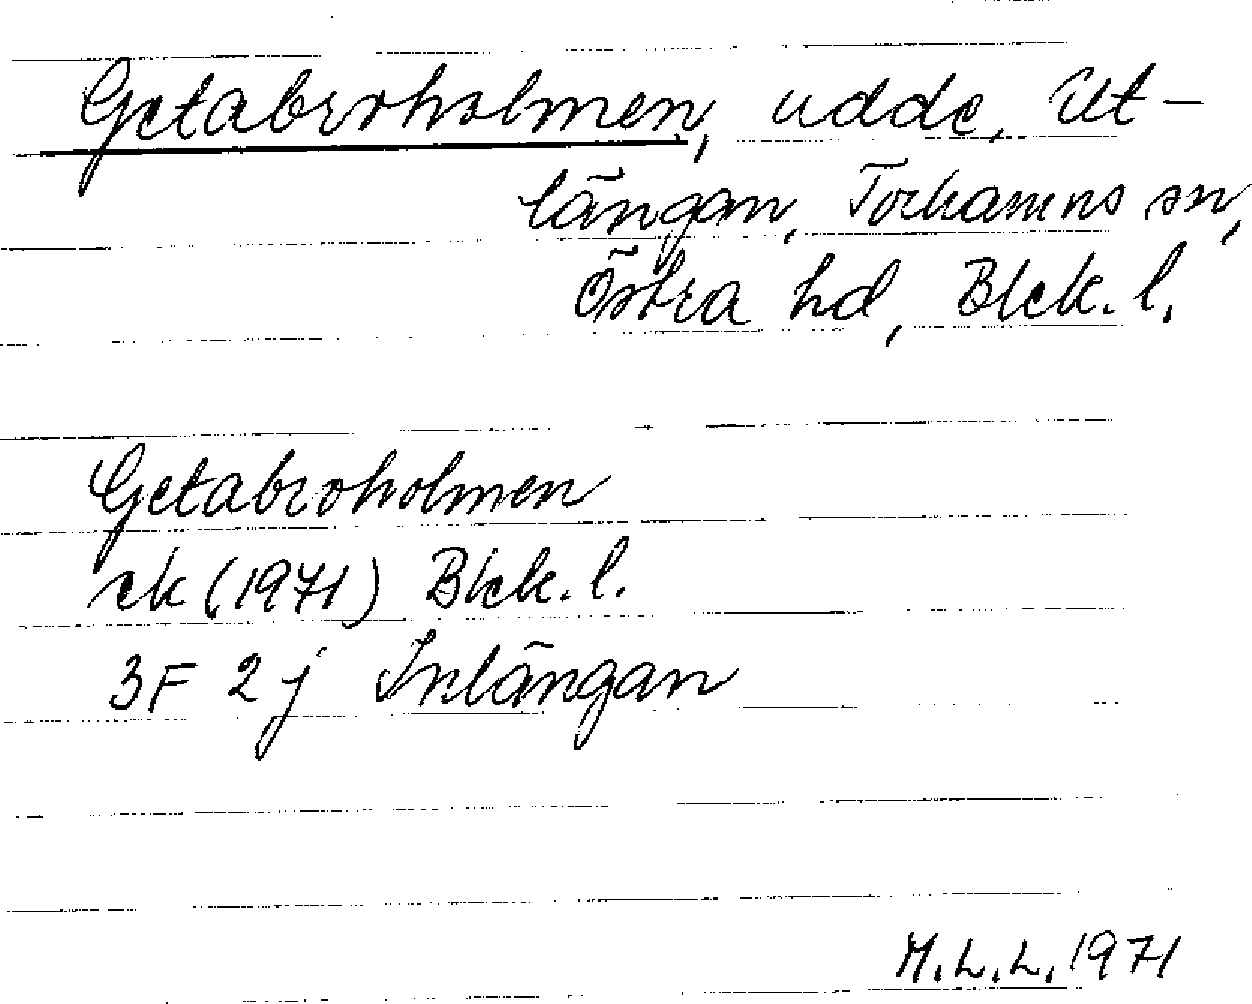 Getabroholmen, udde, Ut-
längan, Torhamns sn,
Östra hd, Blek. l.
Getabroholmen
ek (1971) Blek. l.
3F 2j Inlängan
M.L.L. 1971